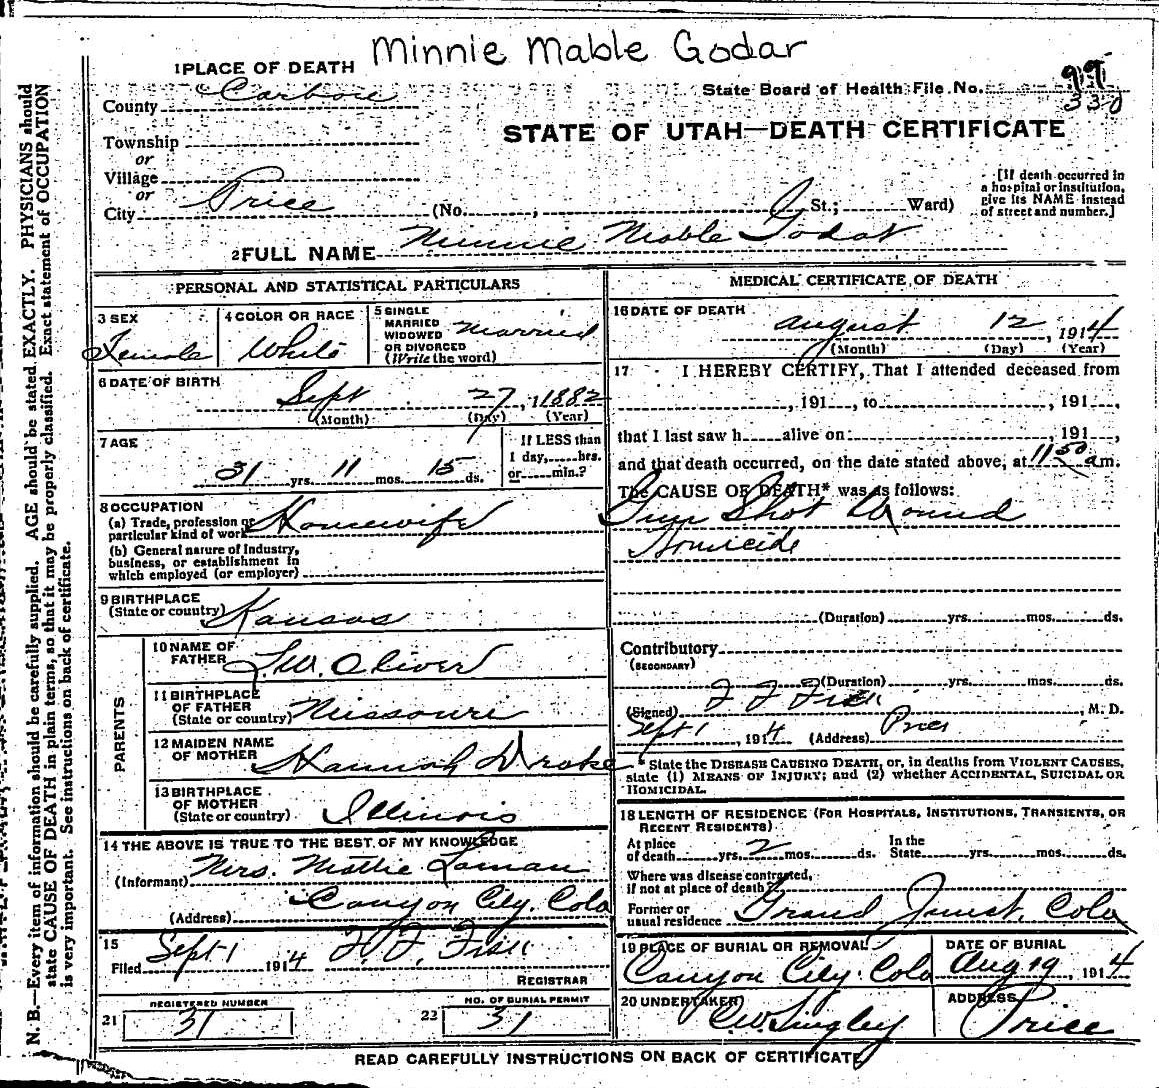 Minnie Mable Godar
1 PLACE OF DEATH
County Carbon
State Board of Health File No. 99
330
Township
or
Village
or
City Price (No. , St.; Ward)
STATE OF UTAH—DEATH CERTIFICATE
[If death occurred in
a hospital or institution,
give its NAME instead
of street and number.]
2 FULL NAME Minnie Mable Godar
PERSONAL AND STATISTICAL PARTICULARS
3 SEX
Female
4 COLOR OR RACE
White
5 SINGLE
MARRIED
WIDOWED
OR DIVORCED
(Write the word)
Married
6 DATE OF BIRTH
Sept 27, 1882
(Month) (Day) (Year)
7 AGE
31 yrs. 11 mos. 15 ds.
If LESS than
1 day, hrs.
or min.?
8 OCCUPATION
(a) Trade, profession or
particular kind of work Housewife
(b) General nature of Industry,
business, or establishment in
which employed (or employer)
9 BIRTHPLACE
(State or country) Kansas
PARENTS
10 NAME OF
FATHER J.W. Oliver
11 BIRTHPLACE
OF FATHER
(State or country) Missouri
12 MAIDEN NAME
OF MOTHER Hannah Drake
13 BIRTHPLACE
OF MOTHER
(State or country) Illinois
14 THE ABOVE IS TRUE TO THE BEST OF MY KNOWLEDGE
(Informant) Mrs. Mattie Laman
(Address) Canyon City, Colo
15
Filed Sept 1 1914 F. F. Fisk
REGISTRAR
REGISTERED NUMBER
21 31
NO. OF BURIAL PERMIT
22 31
MEDICAL CERTIFICATE OF DEATH
16 DATE OF DEATH
August 12, 1914
(Month) (Day) (Year)
17 I HEREBY CERTIFY, That I attended deceased from
, 191 , to , 191 ,
that I last saw h alive on , 191 ,
and that death occurred, on the date stated above, at 11 50 am.
The CAUSE OF DEATH* was as follows:
Gun Shot Wound
Homicide
(Duration) yrs. mos. ds.
Contributory
(SECONDARY)
(Duration) yrs. mos. ds.
(Signed) F F Fisk , M. D.
Sept 1, 1914 (Address) Price
* State the DISEASE CAUSING DEATH, or, in deaths from VIOLENT CAUSES,
state (1) MEANS OF INJURY; and (2) whether ACCIDENTAL, SUICIDAL OR
HOMICIDAL.
18 LENGTH OF RESIDENCE (FOR HOSPITALS, INSTITUTIONS, TRANSIENTS, OR
RECENT RESIDENTS)
At place
of death yrs. 2 mos. ds.
In the
State yrs. mos. ds.
Where was disease contracted,
if not at place of death?
Former or
usual residence Grand Junct. Colo
19 PLACE OF BURIAL OR REMOVAL
Canyon City. Colo
DATE OF BURIAL
Aug 19, 1914
20 UNDERTAKER
C.W. Singley
ADDRESS
Price
READ CAREFULLY INSTRUCTIONS ON BACK OF CERTIFICATE
N. B.—Every item of information should be carefully supplied. AGE should be stated EXACTLY. PHYSICIANS should
state CAUSE OF DEATH in plain terms, so that it may be properly classified. Exact statement of OCCUPATION
is very important. See instructions on back of certificate.